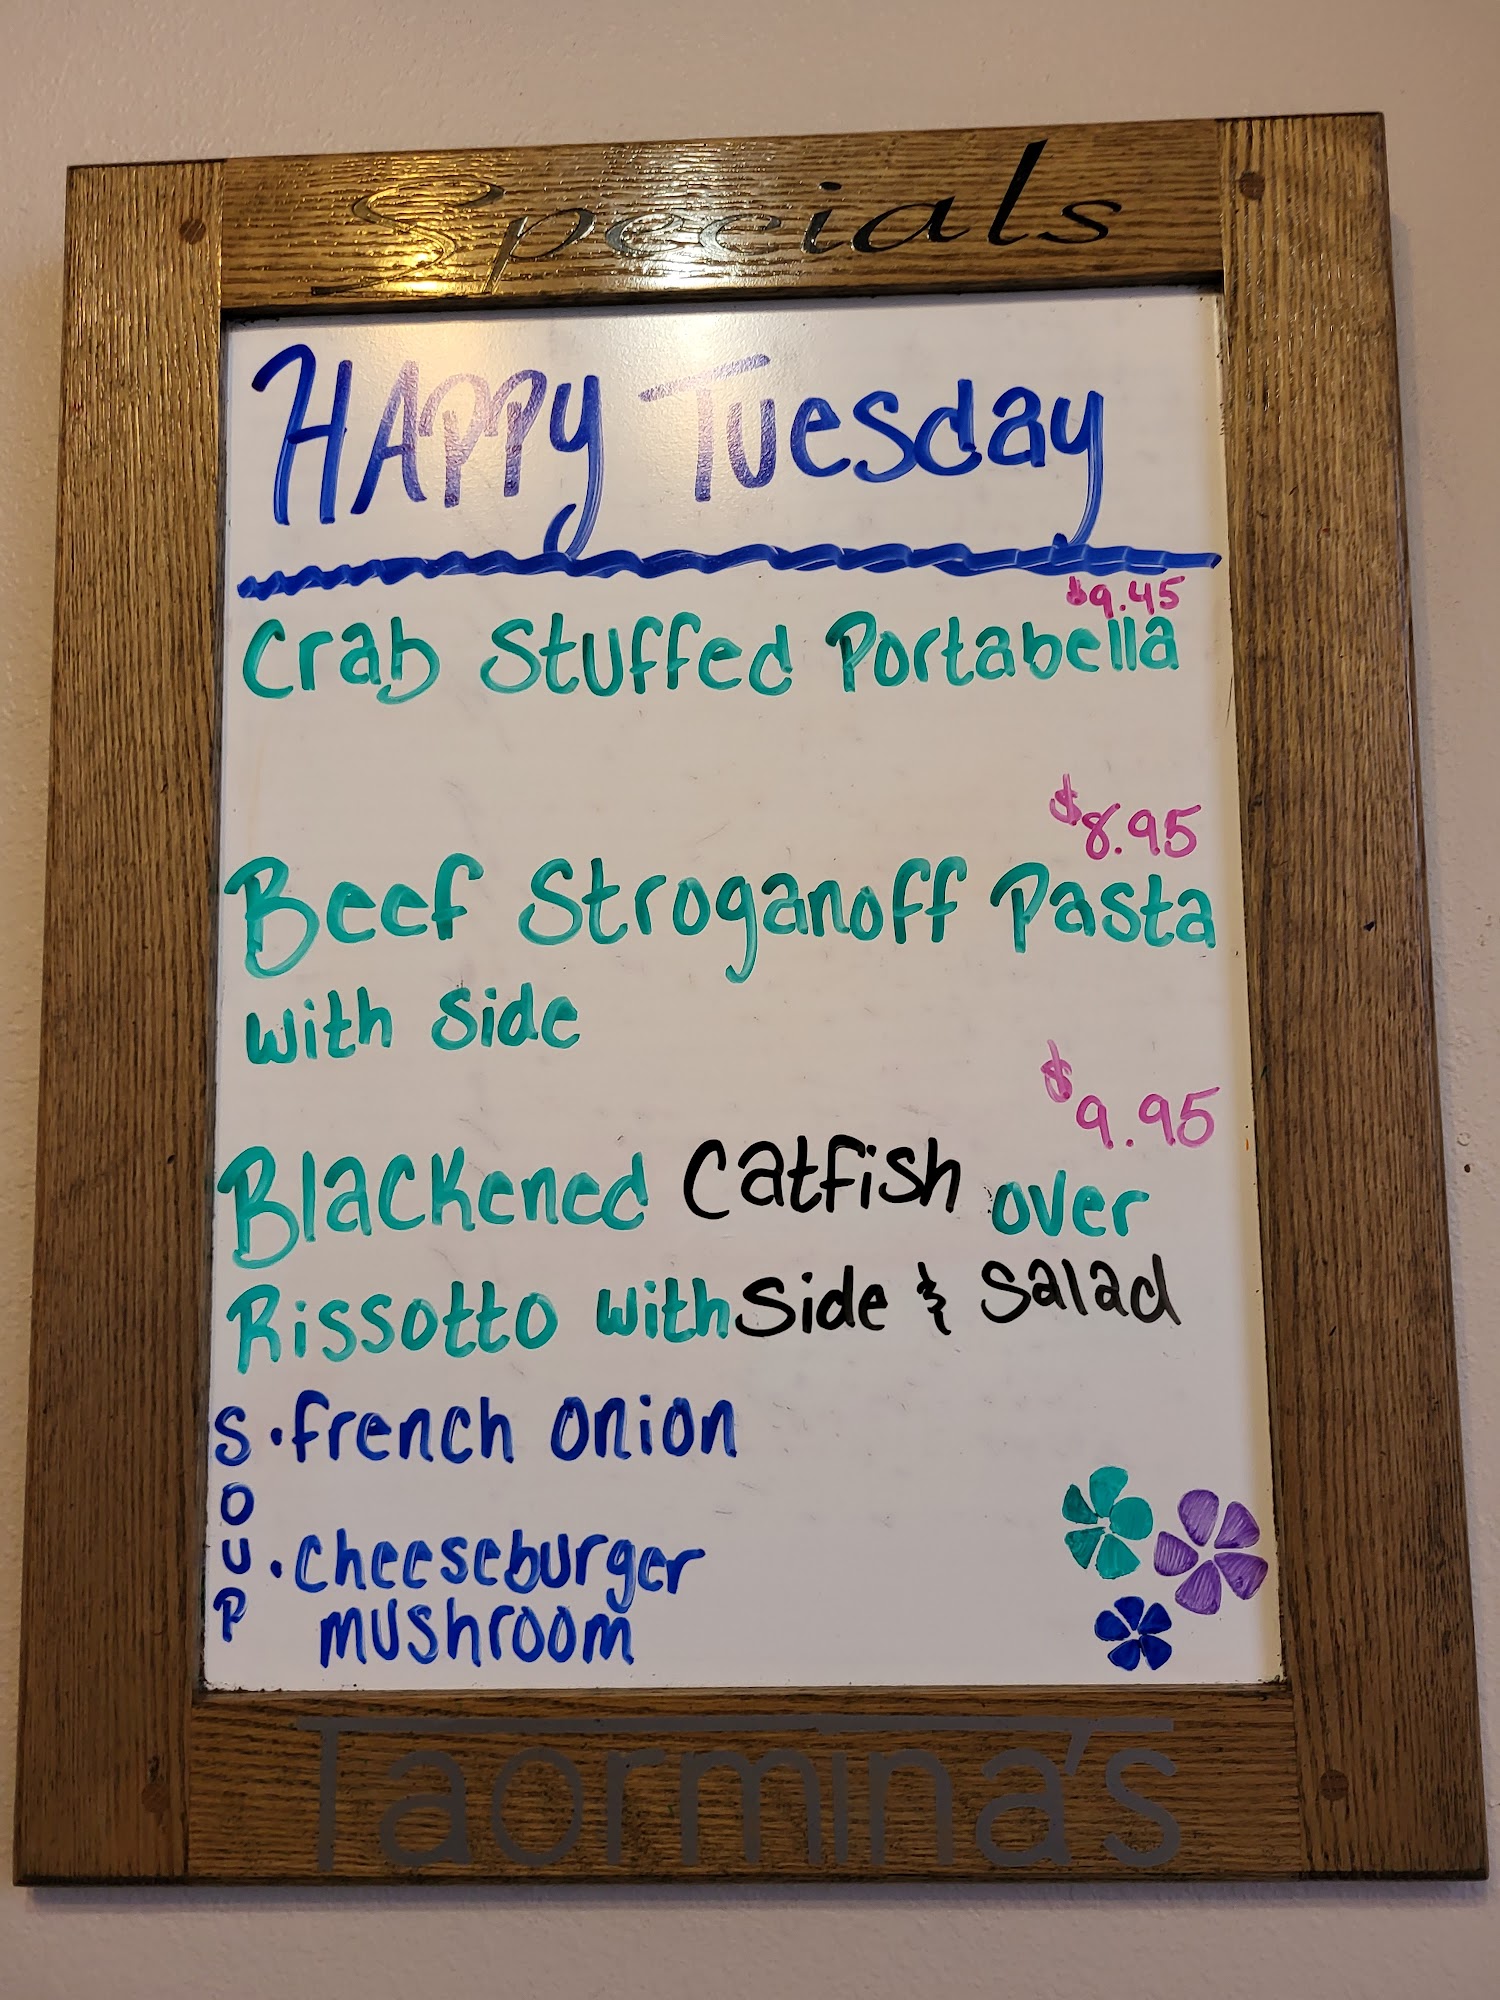 Specials
HAPPy Tuesday
$9.45
Crab Stuffed Portabella
$8.95
Beef Stroganoff Pasta
with side
$9.95
Blackened Catfish over
Rissotto with Side & Salad
SOUP
• French Onion
• Cheeseburger
mushroom
Taormina's